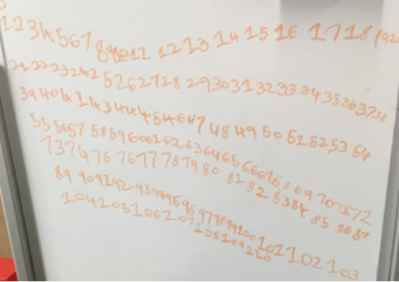 12345678910 11 12 13 14 15 16 17 18 1920
21 22 23 24 25 26 27 28 29 30 31 32 33 34 35 36 37 38
39 40 41 43 44 45 46 47 48 49 50 51 52 53 54
55 56 57 58 59 60 61 62 63 64 65 66 67 68 69 70 71 72
73 74 75 76 77 78 79 80 81 82 83 84 85 86 87
89 90 91 92 93 94 95 96 97 98 99 100 101 102 103
104 105 106 107 108 109 110